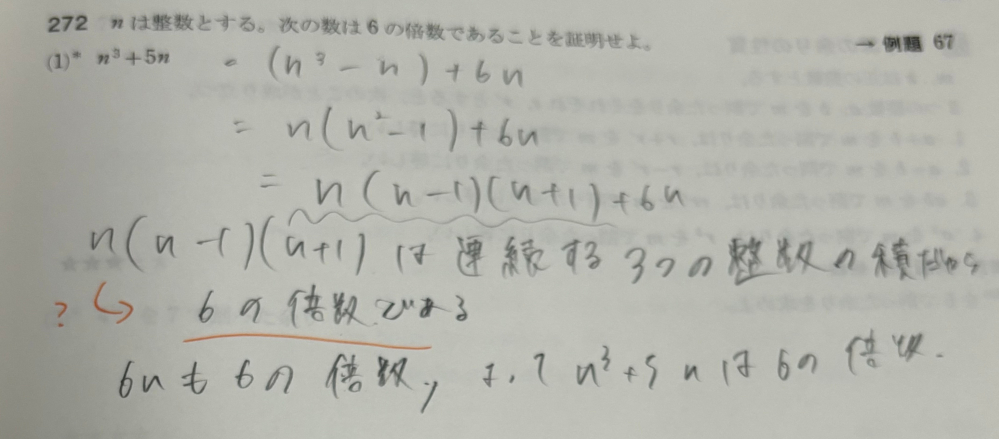 272 nは整数とする。次の数は6の倍数であることを証明せよ。 → 例題 67
(1)* n³+5n = (n³-n)+6n
= n(n²-1)+6n
= n(n-1)(n+1)+6n
n(n-1)(n+1)は連続する3つの整数の積だから
? ↪ 6の倍数である
6nも6の倍数, よってn³+5nは6の倍数.